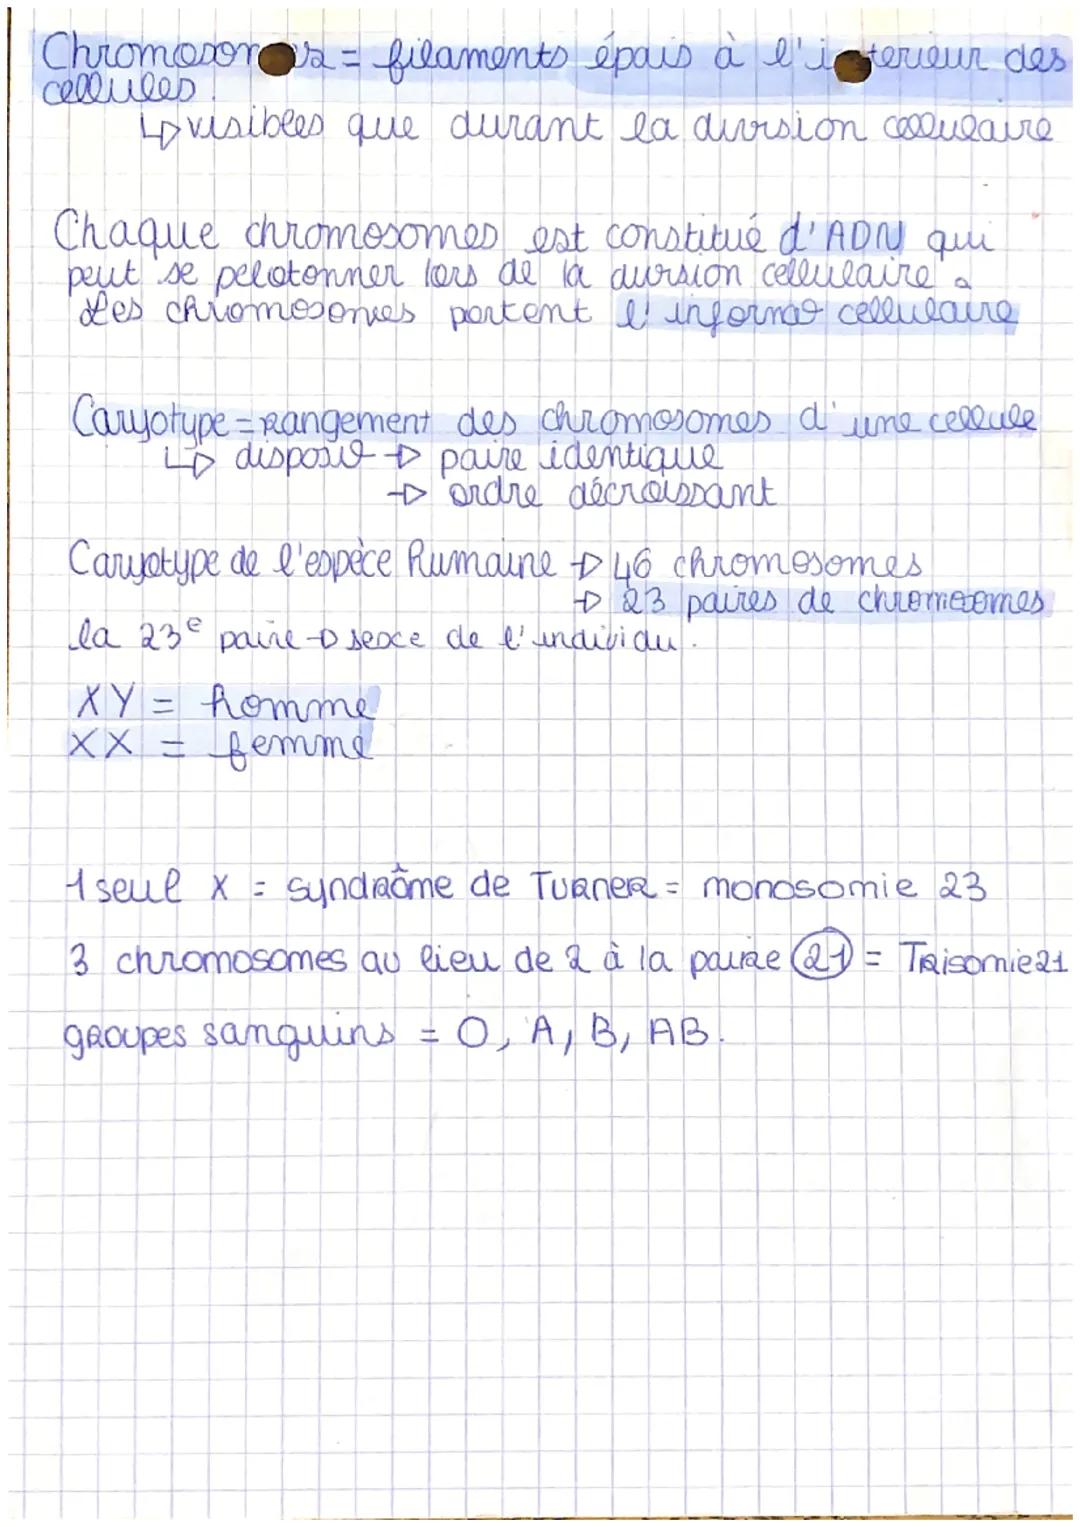 Chromosomes = filaments épais à l'interieur des
cellules.
↳ visibles que durant la division cellulaire
Chaque chromosomes est constitué d'ADN qui
peut se pelotonner lors de la division cellulaire.
Les chromosomes portent l'informa° cellulaire
Caryotype = rangement des chromosomes d'une cellule
↳ → paire identique
→ ordre décroissant
Caryotype de l'espèce humaine → 46 chromosomes
→ 23 paires de chromosomes
la 23e paire → sexe de l'individu.
XY = homme
XX = femme
1 seul X = syndrôme de TURNER = monosomie 23
3 chromosomes au lieu de 2 à la paire 21 = Trisomie 21
groupes sanguins = O, A, B, AB.